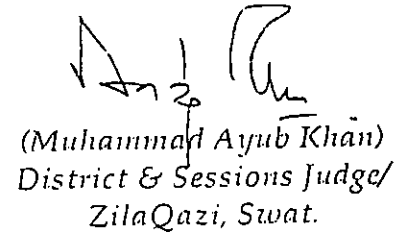 (Muhammad Ayub Khan)
District & Sessions Judge/
ZilaQazi, Swat.